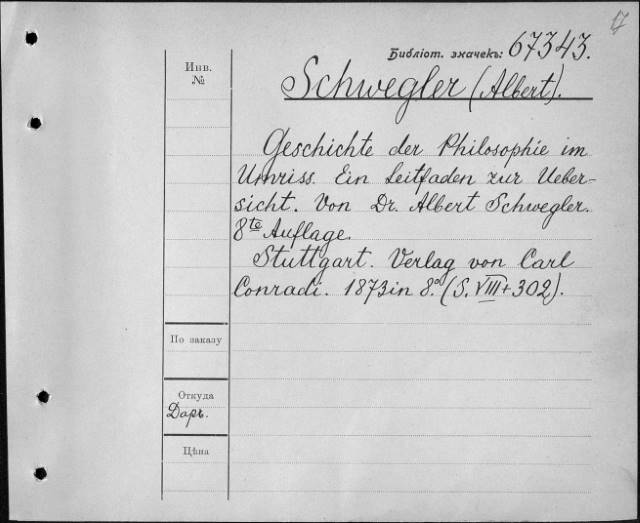 17
Библіот. значекъ: 67343.
Инв.
№
Schwegler (Albert).
Geschichte der Philosophie im
Umriss. Ein Leitfaden zur Ueber-
sicht. Von Dr. Albert Schwegler.
8te Auflage.
Stuttgart. Verlag von Carl
Conradi. 1873 in 8.º (S. VIII + 302).
По заказу
Откуда
Даръ.
Цѣна